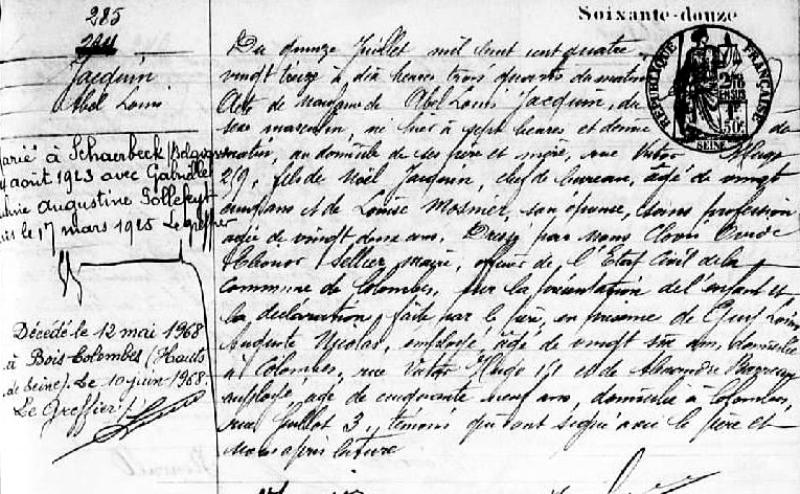 285
Soixante-douze
Jacquin
Abel Louis
Marié à Schaerbeek (Belgique)
août 1923 avec Gabrielle
Augustine Gollekeyt
le 17 mars 1925 Le greffier
Décédé le 12 mai 1968
à Bois Colombes (Hauts
de Seine). Le 10 juin 1968.
Le Greffier
Du quinze Juillet mil huit cent quatre
vingt treize à dix heures trois quarts du matin
Acte de naissance de Abel Louis Jacquin, du
sexe masculin, né hier à sept heures et demie du
matin, au domicile de ses père et mère, rue Victor Hugo
219, fils de Noël Jacquin, chef de bureau, âgé de vingt
cinq ans et de Louise Mosnier, son épouse, sans profession
âgée de vingt deux ans. Dressé par nous Clovis
Sellier, Maire, officier de l'Etat Civil de la
Commune de Colombes, sur la présentation de l'enfant et
la déclaration, faite par le père, en présence de Louis
Auguste Nicolas, employé, âgé de vingt six ans, domicilié
à Colombes, rue Victor Hugo 171 et de Alexandre
employé, âgé de cinquante neuf ans, domicilié à Colombes,
rue Juillot 3, témoins qui ont signé avec le père et
Nous après lecture
RÉPUBLIQUE FRANÇAISE
50c
SEINE